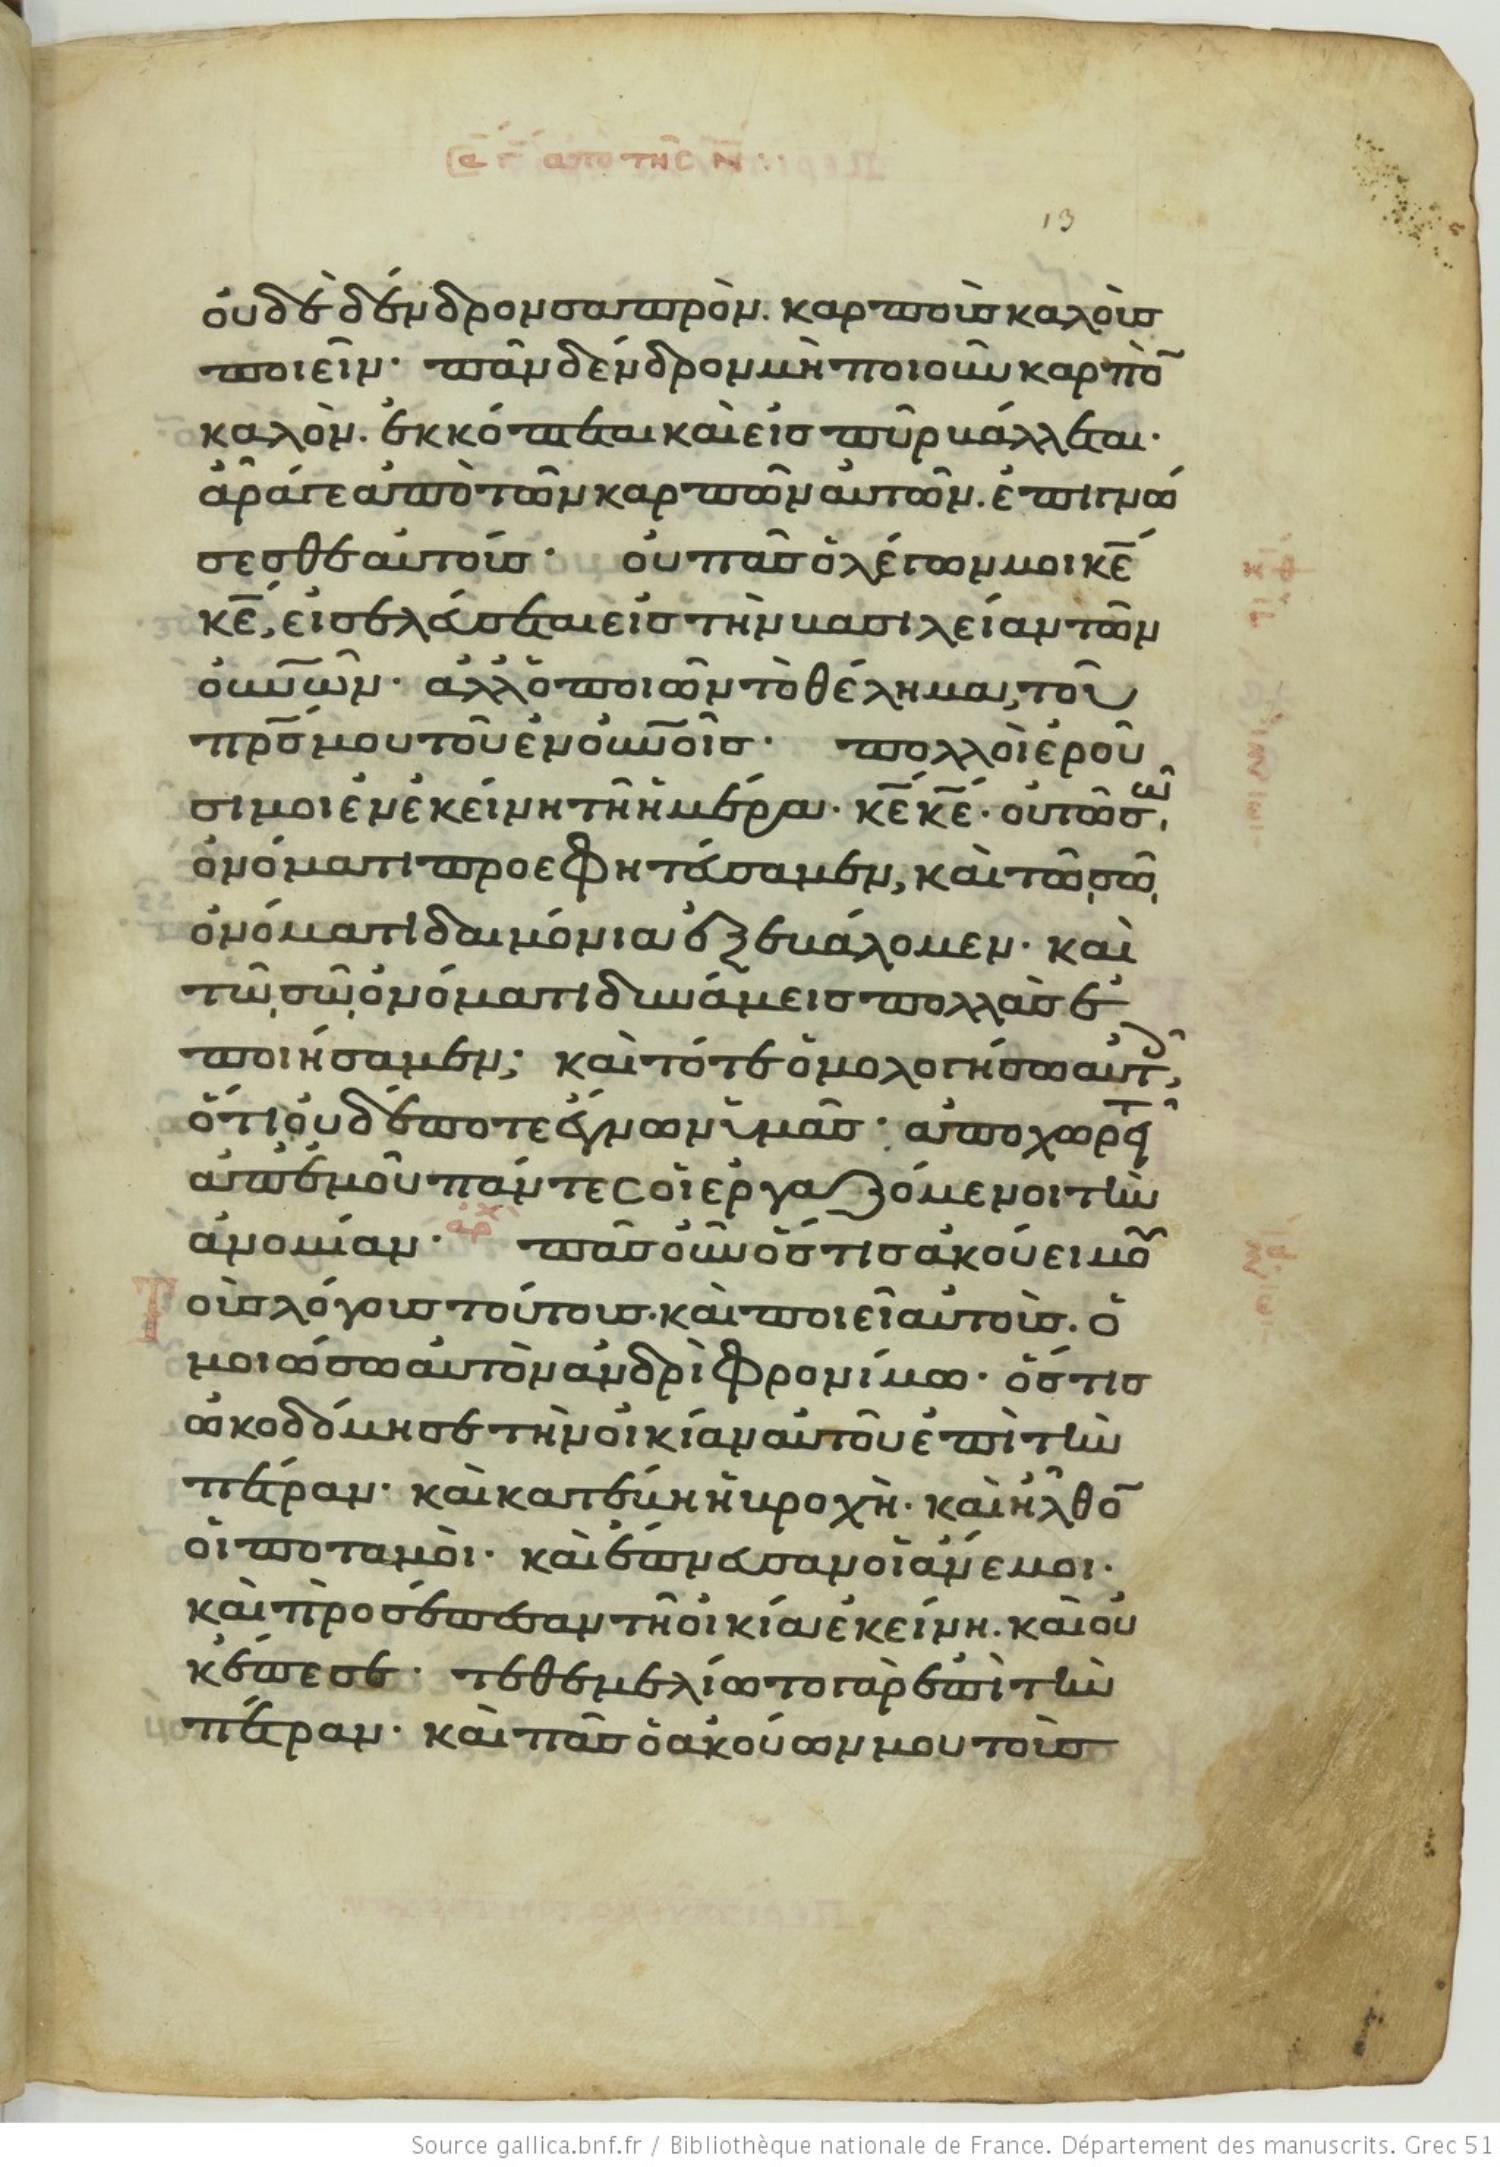 σα γ απο της ν
13
οὐδὲ δένδρον σαπρὸν. καρποὺς καλοὺς
ποιεῖν· πᾶν δένδρον μὴ ποιοῦν καρπὸ̅
καλὸν. ἐκκόπτεται καὶ εἰς πῦρ βάλλεται·
ἆρά γε ἀπὸ τῶν καρπῶν αὐτῶν. ἐπιγνώ
σεσθε αὐτούς· οὐ πᾶς ὁ λέγων μοι κ̅ε̅
κ̅ε̅, εἰσελεύσεται εἰς τὴν βασιλείαν τῶν
οὐν̅ῶν· ἀλλ' ὁ ποιῶν τὸ θέλημα, τοῦ
π̅ρ̅ς̅ μου τοῦ ἐν οὐν̅οῖς· πολλοὶ ἐροῦ
σι μοι ἐν ἐκείνη τῆ ἡμέρα· κ̅ε̅ κ̅ε̅· οὐ τῶ σῶ,
ὀνόματι προεφητεύσαμεν, καὶ τῶ, σῶ,
ὀνόματι δαιμόνια ἐξεβάλομεν· καὶ
τῶ, σῶ, ὀνόματι δυνάμεις πολλὰς ἐ
ποιήσαμεν; καὶ τότε ὁμολογήσω αὐτοῖς,
ὅτι οὐδέποτε ἔγνων ὑμᾶς· ἀποχωρεῖτε
ἀπ' ἐμοῦ πάντες οἱ ἐργαζόμενοι τὴν
ἀνομίαν· ἀρχ πᾶς οὖν ὅστις ἀκούει μου
τοὺς λόγους τούτους· καὶ ποιεῖ αὐτοὺς. ὁ
μοιώσω αὐτὸν ἀνδρὶ φρονίμω· ὅστις
ὠκοδόμησε τὴν οἰκίαν αὐτοῦ ἐπὶ τὴν
πέτραν· καὶ κατέβη ἡ βροχὴ· καὶ ἦλθο̅
οἱ ποταμοὶ· καὶ ἔπνευσαν οἱ ἄνεμοι·
καὶ προσέπεσαν τῆ οἰκία ἐκείνη. καὶ οὐ
κ ἔπεσε· τεθεμελίωτο γὰρ ἐπὶ τὴν
πέτραν· καὶ πᾶς ὁ ἀκούων μου τοὺς
Source gallica.bnf.fr / Bibliothèque nationale de France. Département des manuscrits. Grec 51